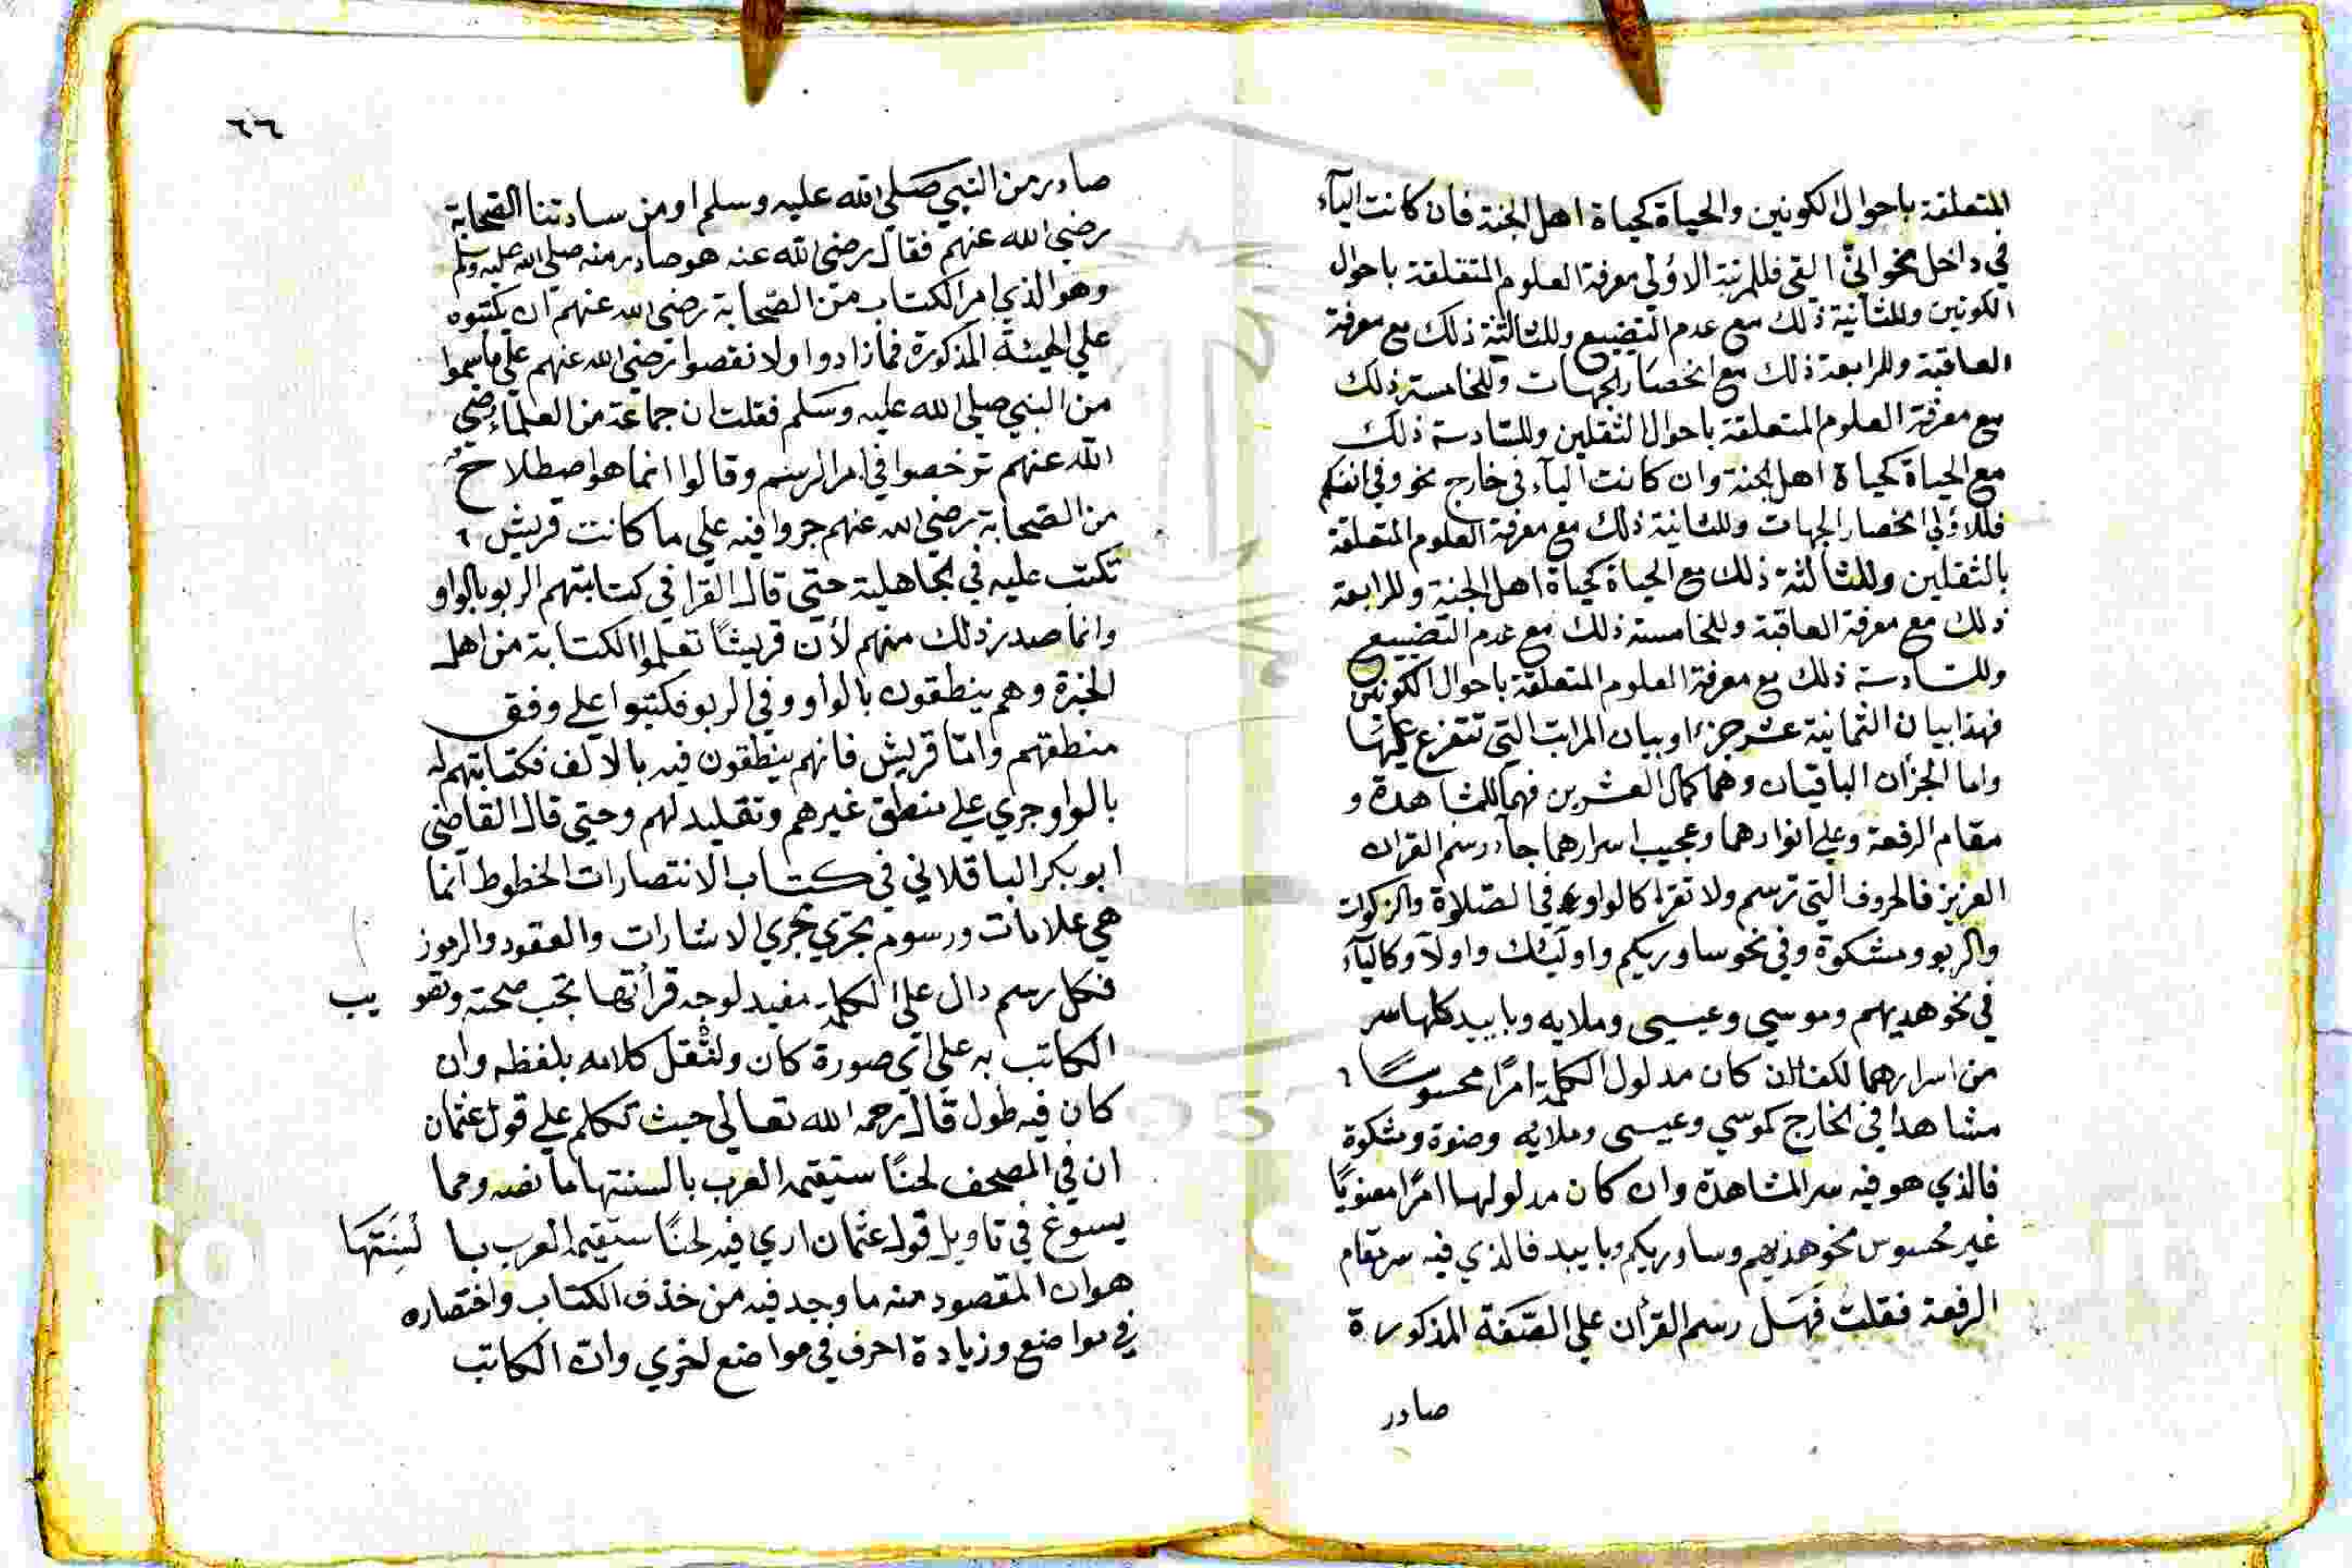 المتعلقة باحوال الكونين والحياة كحياة اهل الجنة فان كانت اليآء
في داخل نحو انيّ القى فللمرتبة الاؤلي معرفة العلوم المتعلقة باحوال
الكونين وللثانية ذلك مع عدم التضييع وللثالثة ذلك مع معرفة
العاقبة وللرابعة ذلك مع انحصار الجهات وللخامسة ذلك
مع معرفة العلوم المتعلقة باحوال الثقلين وللسّادسة ذلك
مع الحياة كحياة اهل الجنة وان كانت اليآء في خارج نحو وفي انفسكم
فللاؤلي انحصار الجهات وللثانية ذلك مع معرفة العلوم المتعلقة
بالثقلين وللثالثة ذلك مع الحياة كحياة اهل الجنة وللرابعة
ذلك مع معرفة العاقبة وللخامسة ذلك مع عدم التضييع
وللسادسة ذلك مع معرفة العلوم المتعلقة باحوال الكونين
فهذا بيان الثمانية عشر جزءا وبيان المراتب التي تتفرع عليها
واما الجزأن الباقيان وهما كمال العشرين فهما للمشاهدة و
مقام الرفعة وعلي انوارهما وعجيب اسرارهما جآء رسم القران
العزيز فالحروف التي ترسم ولا تقرا كالواو في الصّلاوة والزكوة
والربو ومشكوة وفي نحو ساوريكم واولَيك واولآ وكاليآء
في نحو هديهم وموسي وعيسى وملايه وبابيد كلها سر
من اسرارهما لكن ان كان مدلول الكلمة امرًا محسوسًا
مشاهدا في الخارج كموسي وعيسى وملايه وصنوة ومشكوة
فالذي هو فيه سر المشاهدة وان كان مدلولها امرًا معنويًا
غير محُسوس نحو هديهم وساوريكم وبابيد فالذي فيه سر مقام
الرفعة فقلتُ فهَل رسم القرأن علي الصّفة المذكورة
صادر
٦٦
صادر من النبي صَلي الله عليه وسلم او من سادتنا الصّحابة
رضي الله عنهم فقال رضي الله عنه هو صادر منه صلي الله عليه وسلم
وهو الذي امر الكتاب من الصّحابة رضي الله عنهم ان يكتبوه
علي الهيئة المذكورة فما زادوا ولا نقصوا رضي الله عنهم علي ما سمعوا
من النبي صلي الله عليه وسَلم فقلت ان جماعة من العلماء رضي
الله عنهم ترخصوا في امر الرسم وقالوا انما هو اصطلاح
من الصّحابة رضي الله عنهم جروا فيه علي ما كانت قريش
تكتب عليه في الجاهلية حتي قال الفرا في كتابتهم الربو بالواو
وانما صدر ذلك منهم لأن قريشًا تعلموا الكتابة من اهل
الحيرة وهم ينطقون بالواو وفي الربو فكتبوا علي وفق
منطقهم وامّا قريش فانهم ينطقون فيه بالالف فكتابتهم له
بالواو جري علي منطق غيرهم وتقليد لهم وحتي قال القاضي
ابو بكر الباقلاني في كتاب الانتصارات الخطوط انما
هي علامات ورسوم تجري مجري الاشارات والعقود والرموز
فكل رسم دال علي الكلمة مفيد لوجه قرأتها تجب صحته وتصويب
الكاتب به علي اي صورة كان ولنْنقل كلامه بلفظه وان
كان فيه طول قال رحمه الله تعالي حيث تكلم علي قول عثمان
ان في المصحف لحنًا ستقيمه العرب بالسنتها ما نصه ومما
يسوغ في تاويل قول عثمان اري فيه لحنًا ستقيمه العرب بالسِنَتِهَا
هو ان المقصود منه ما وجد فيه من حذف الكتاب واختصاره
في مواضع وزيادة احرف في مواضع اخري وان الكاتب